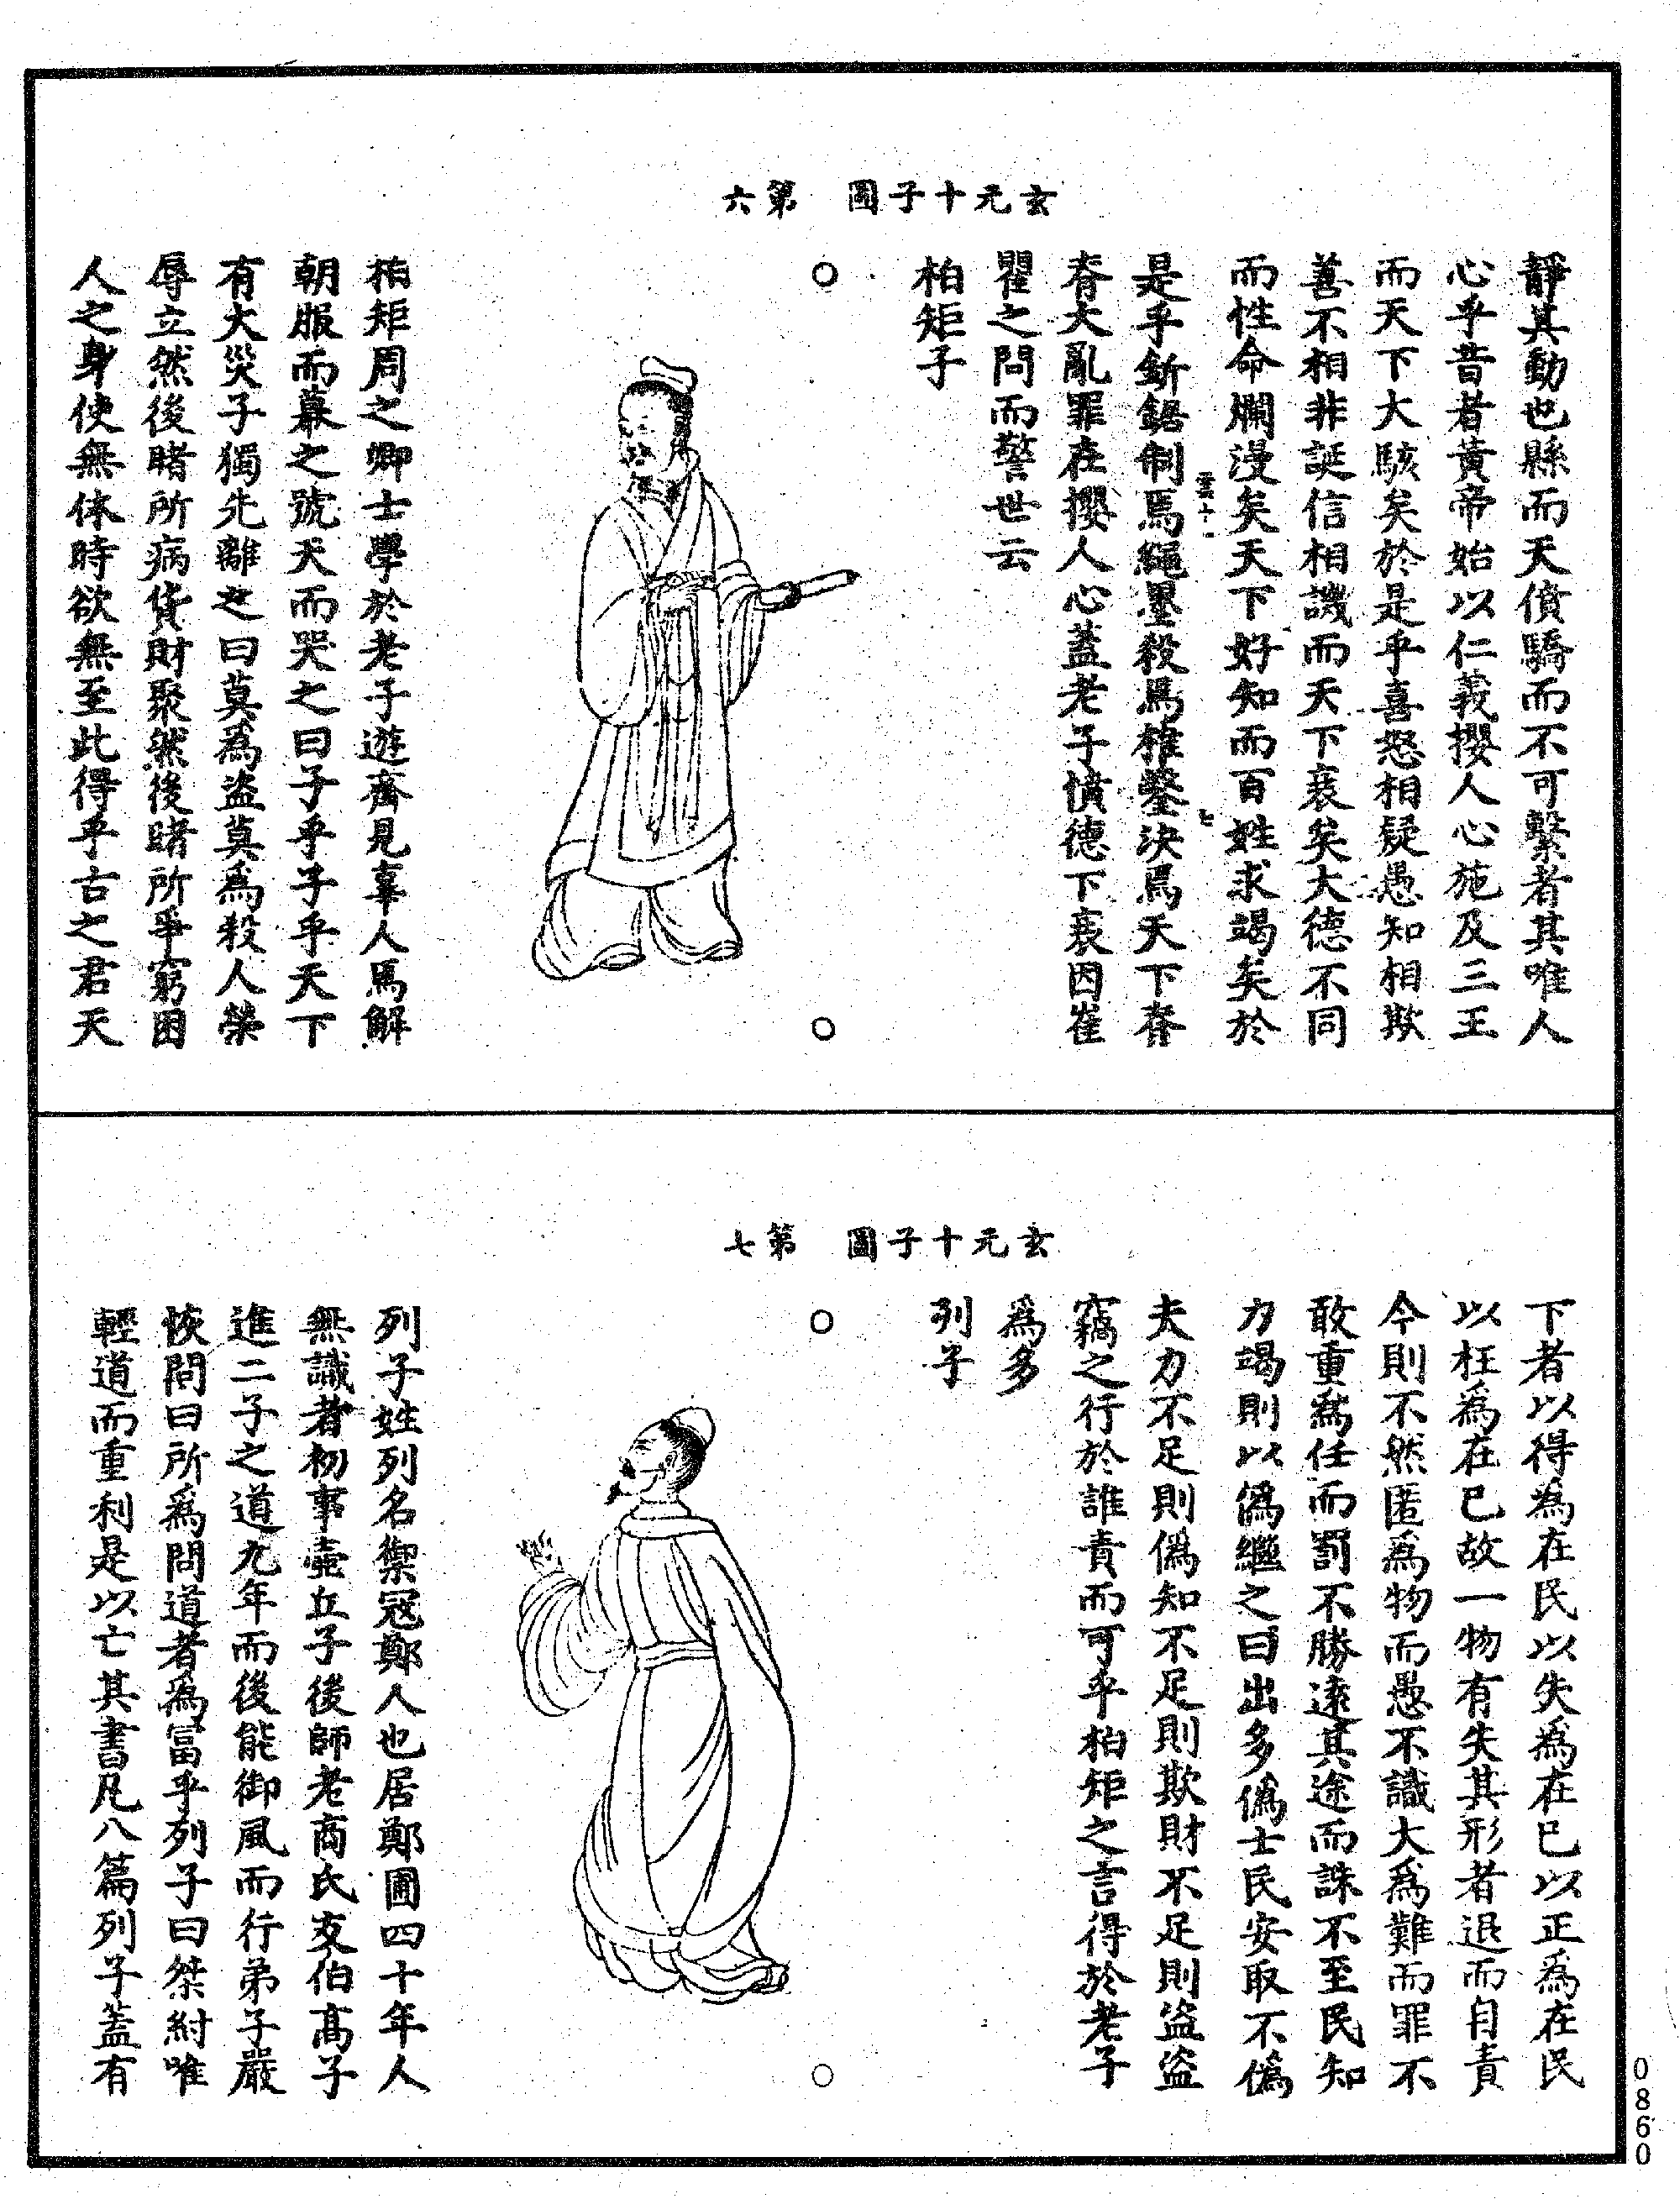 玄元十子圖　第六
靜其動也縣而天僨驕而不可繫者其唯人
心乎昔者黃帝始以仁義攖人心施及三王
而天下大駭矣於是乎喜怒相疑愚知相欺
善不相非誕信相譏而天下衰矣大德不同
而性命爛漫矣天下好知而百姓求竭矣於
是乎釿鋸制焉繩墨殺焉椎鑿決焉天下脊
脊大亂罪在攖人心蓋老子憤德下衰因崔
瞿之問而警世云
柏矩子
柏矩周之卿士學於老子遊齊見辜人焉解
朝服而幕之號天而哭之曰子乎子乎天下
有大災子獨先離之曰莫為盜莫為殺人榮
辱立然後睹所病貨財聚然後睹所爭窮困
人之身使無休時欲無至此得乎古之君天
玄元十子圖　第七
下者以得為在民以失為在己以正為在民
以枉為在己故一物有失其形者退而自責
今則不然匿為物而愚不識大為難而罪不
敢重為任而罰不勝遠其途而誅不至民知
力竭則以偽繼之日出多偽士民安取不偽
夫力不足則偽知不足則欺財不足則盜盜
竊之行於誰責而可乎柏矩之言得於老子
為多
列子
列子姓列名禦冠鄭人也居鄭圃四十年人
無識者初事壺丘子後師老商氏友伯高子
進二子之道九年而後能御風而行弟子嚴
恢問曰所為問道者為富乎列子曰桀紂唯
輕道而重利是以亡其書凡八篇列子蓋有
0860